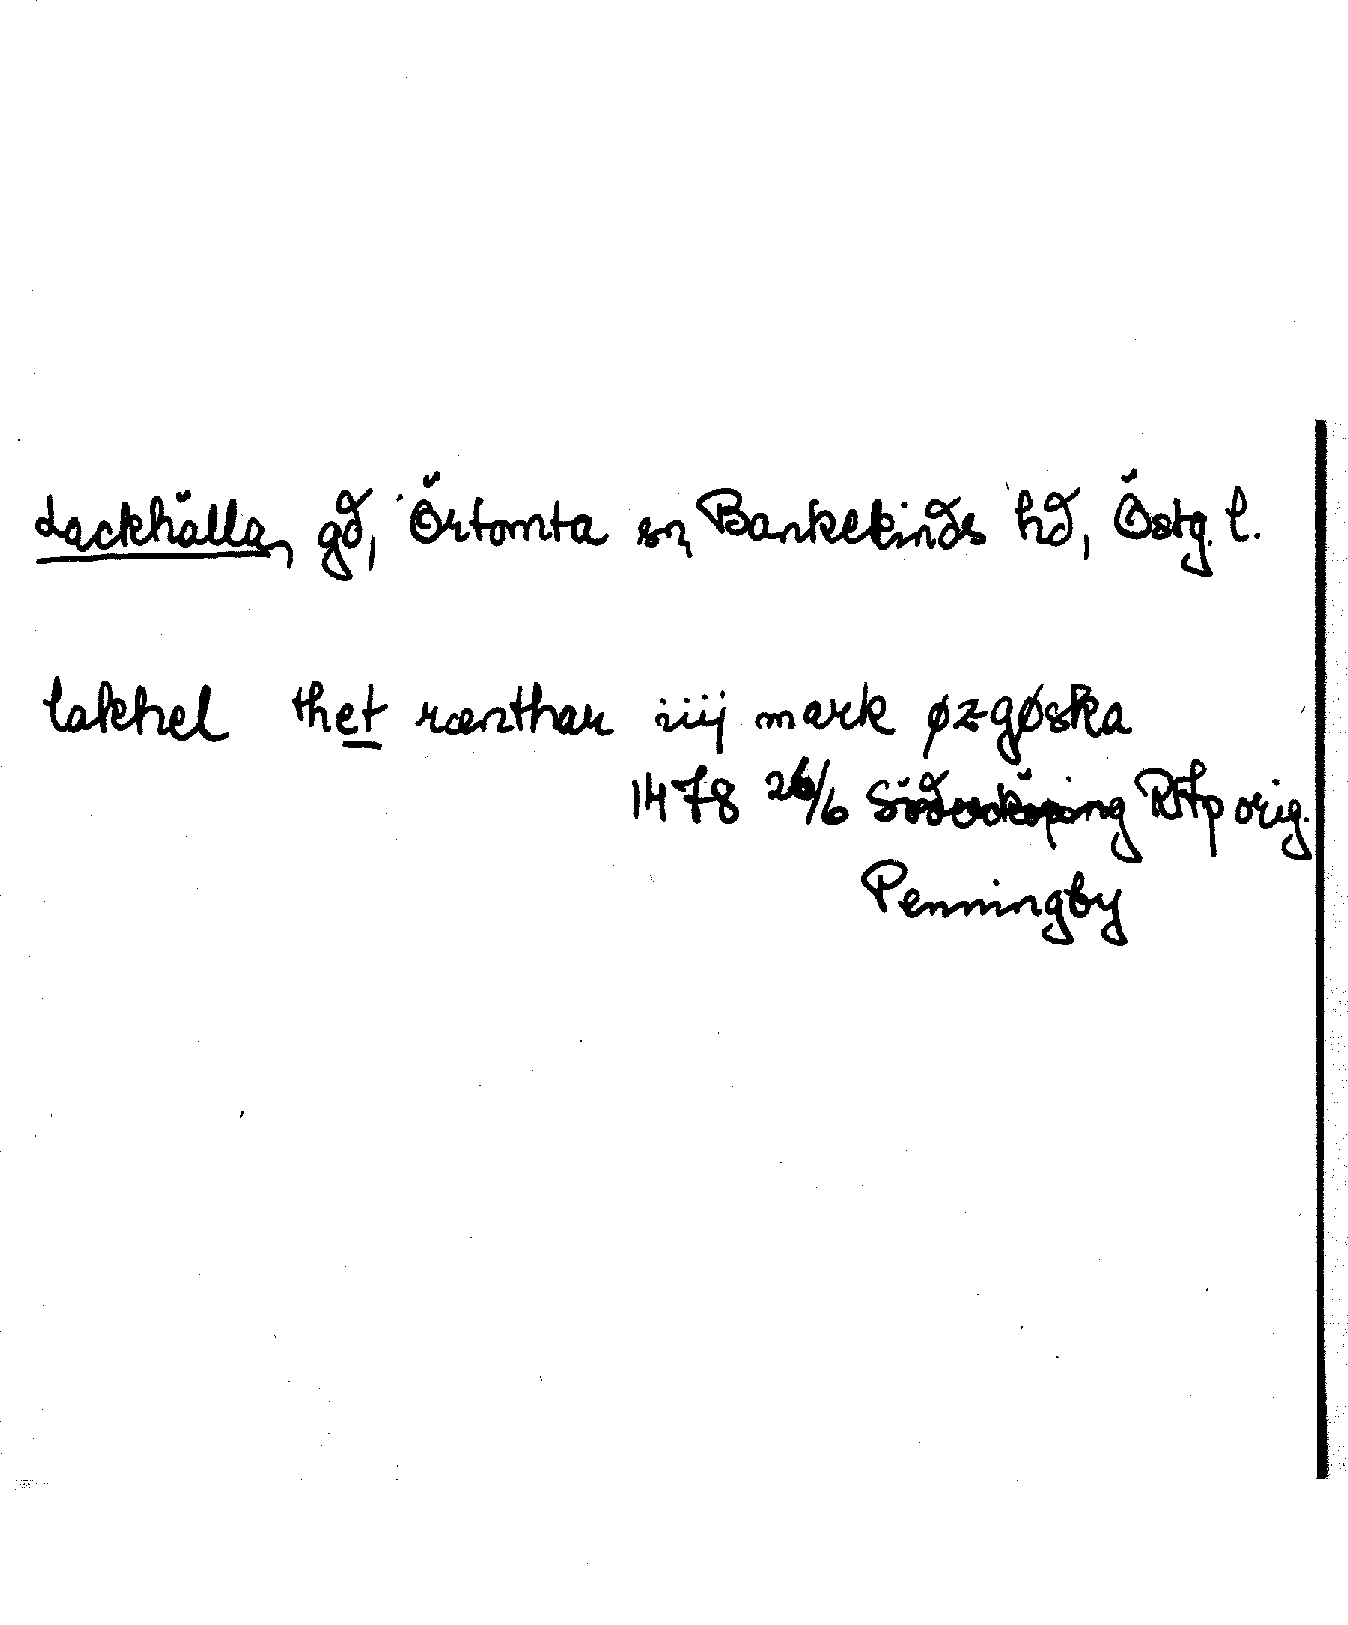 Lackhälla, gd, Örtomta sn, Bankekinds hd, Östg. l.
lakhel thet rænthar iiij mark øzgøska
1478 26/6 Söderköping RAp orig.
Penningby